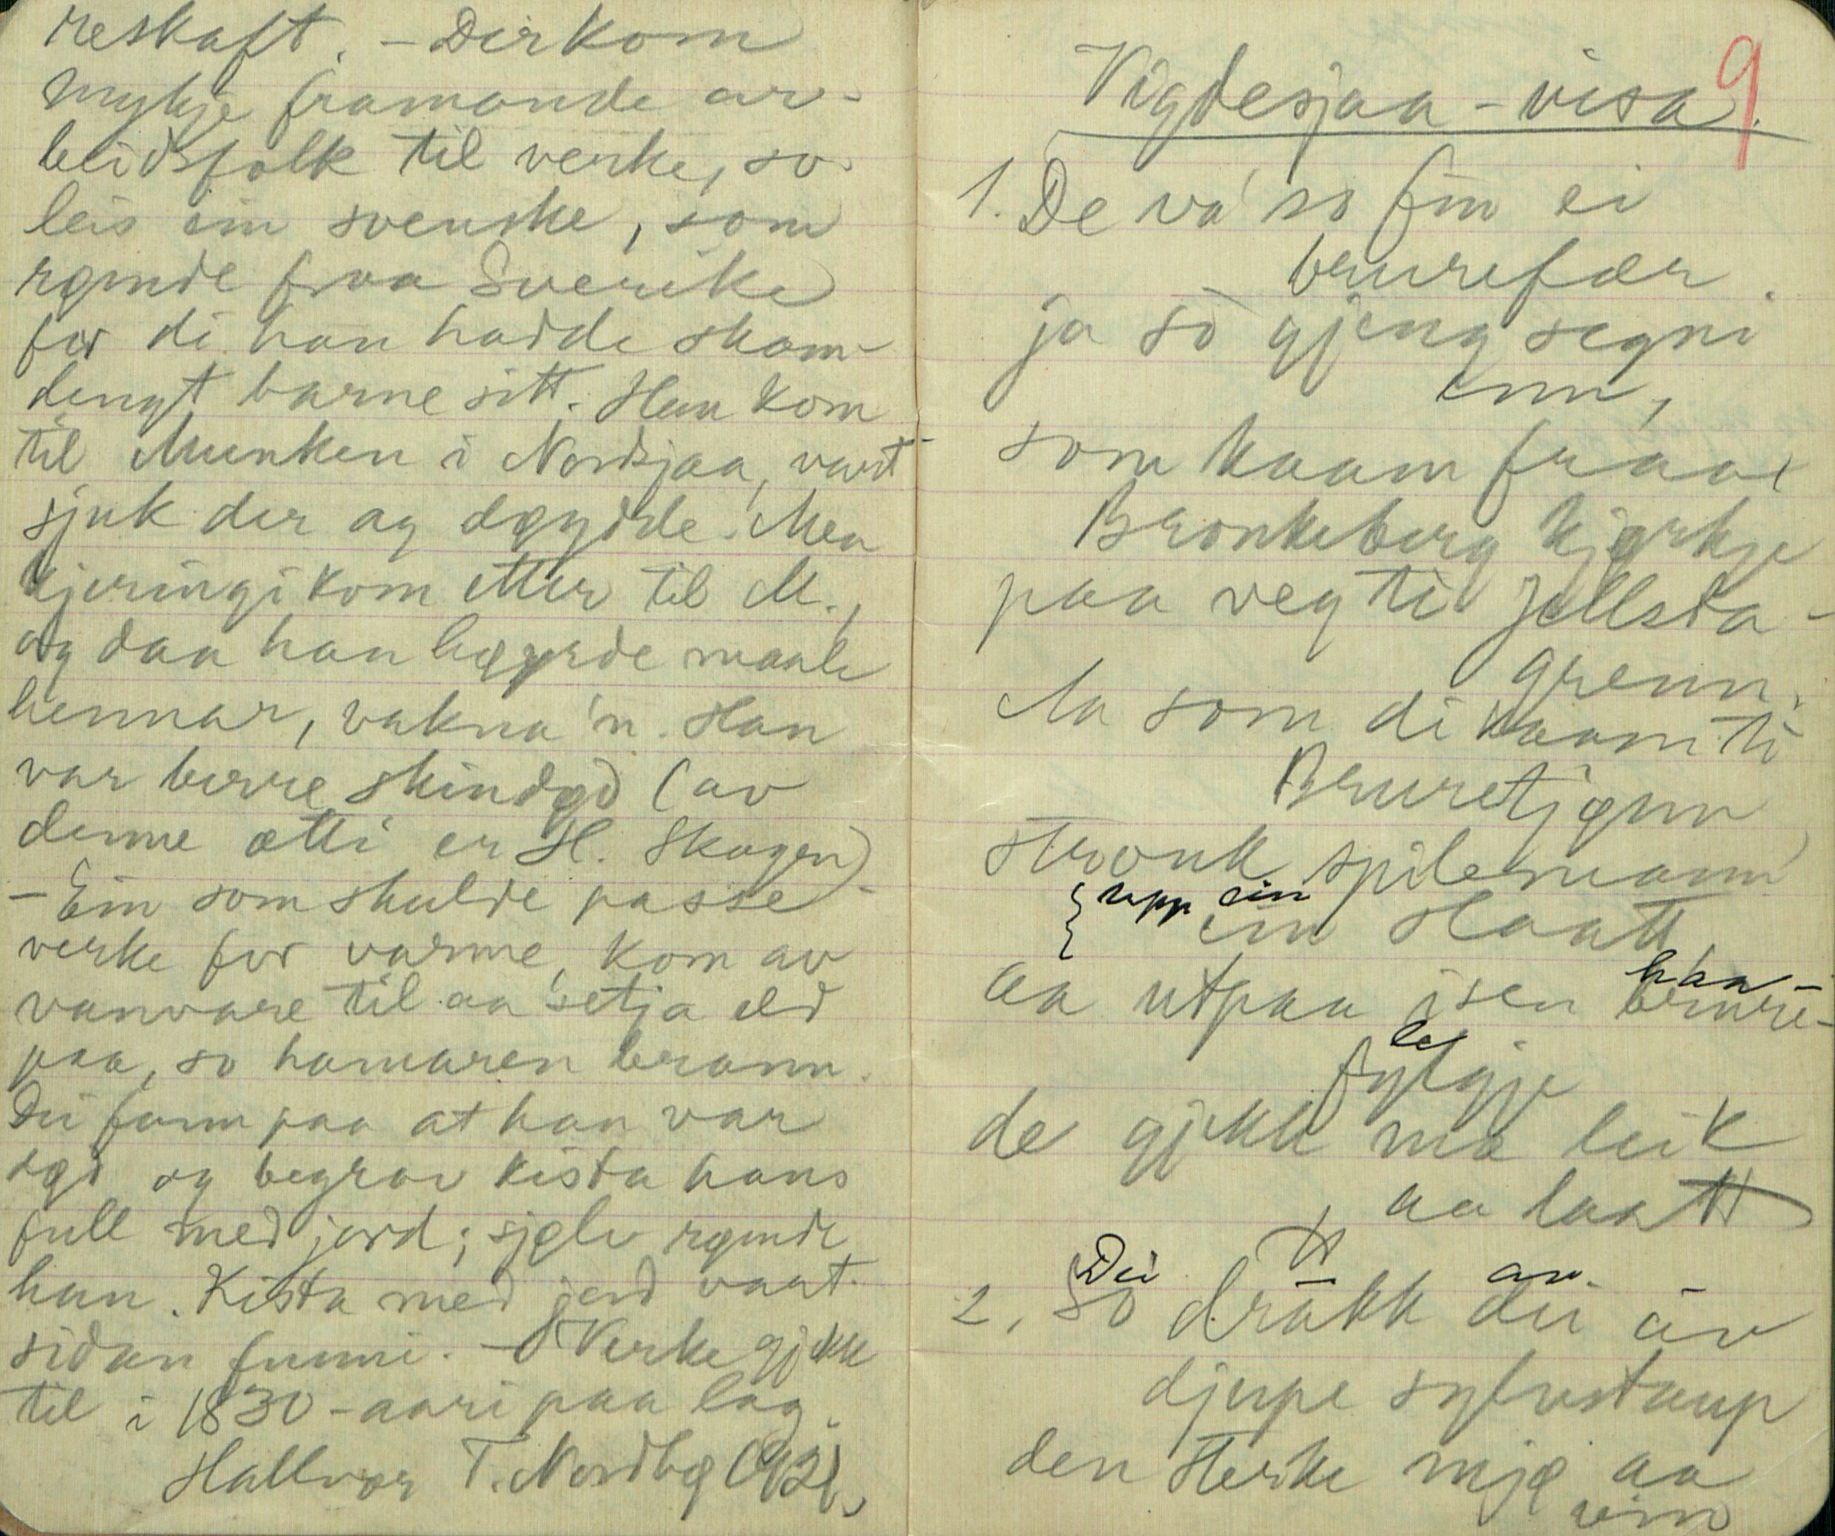 reskaft. – Der kom
mykje framande ar-
beidsfolk til verke, so-
leis ein svenske, som
rømde fraa Sverike
for di han hadde skam-
dengt barne sitt. Han kom
til Munken i Nordsjaa, vart
sjuk der og døyde. Men
kjeringi kom etter til M.,
og daa han høyrde maale
hennar, vakna 'n. Han
var berre skindød (av
denne ætti er H. Skogen)
– Ein som skulde passe
verke for varme, kom av
vanvare til aa setja eld
paa, so hamaren brann.
Dei fann paa at han var
død og begrov kista hans
full med jord; sjølv rømde
han. Kista med jord vart
sidan funni. – Verke gjekk
til i 1830-aari paa lag.
Hallvor T. Nordbø (92).
9
Vigdesjaa-visa.
1. De va' so fin ei
brurefær.
ja so gjeng segni
enn,
som kaam fraa
Bronkeberg kjørkje
paa veg ti Jellsta-
grenn.
Aa som di kaam ti
Bruretjønn
strouk spilemann
upp ein
ein slaatt,
aa utpaa isen brure-
fylgje
de gjekk mæ leik
aa laatt
Dei av
2, So drakk dei av
djupe sylvstaup
den sterke mjø aa
vin